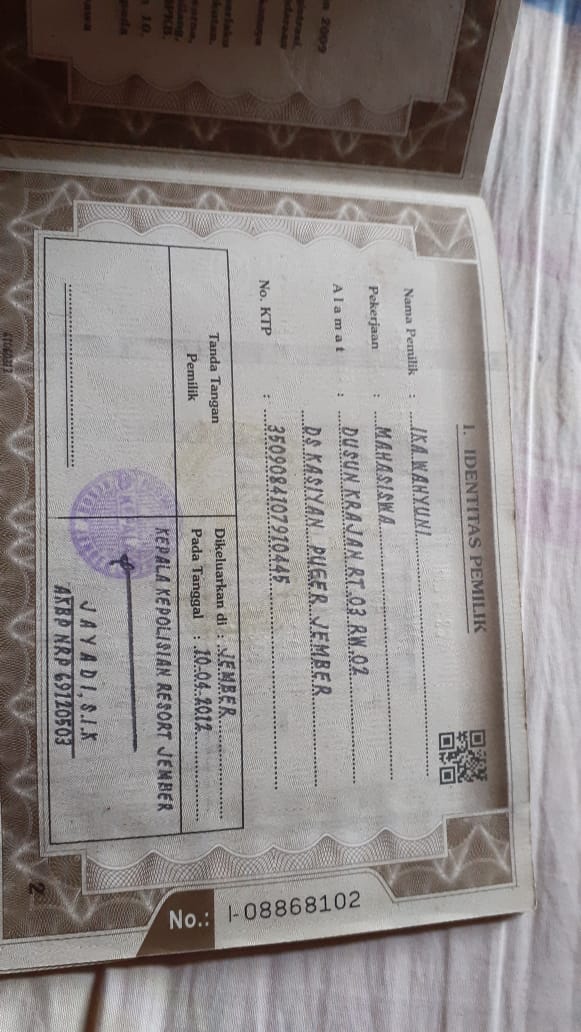 n 2009
10.
BPKB.
I. IDENTITAS PEMILIK
Nama Pemilik : IKA WAHYUNI
Pekerjaan : MAHASISWA
Alamat : DUSUN KRAJAN RT.03 RW.02
DS KASIYAN PUGER JEMBER
No. KTP : 3509084107910445
Tanda Tangan
Pemilik
Dikeluarkan di : JEMBER
Pada Tanggal : 10-04-2012
KEPALA KEPOLISIAN RESORT JEMBER
JAYADI, S.I.K
AKBP NRP 69120503
No.: I-08868102
2